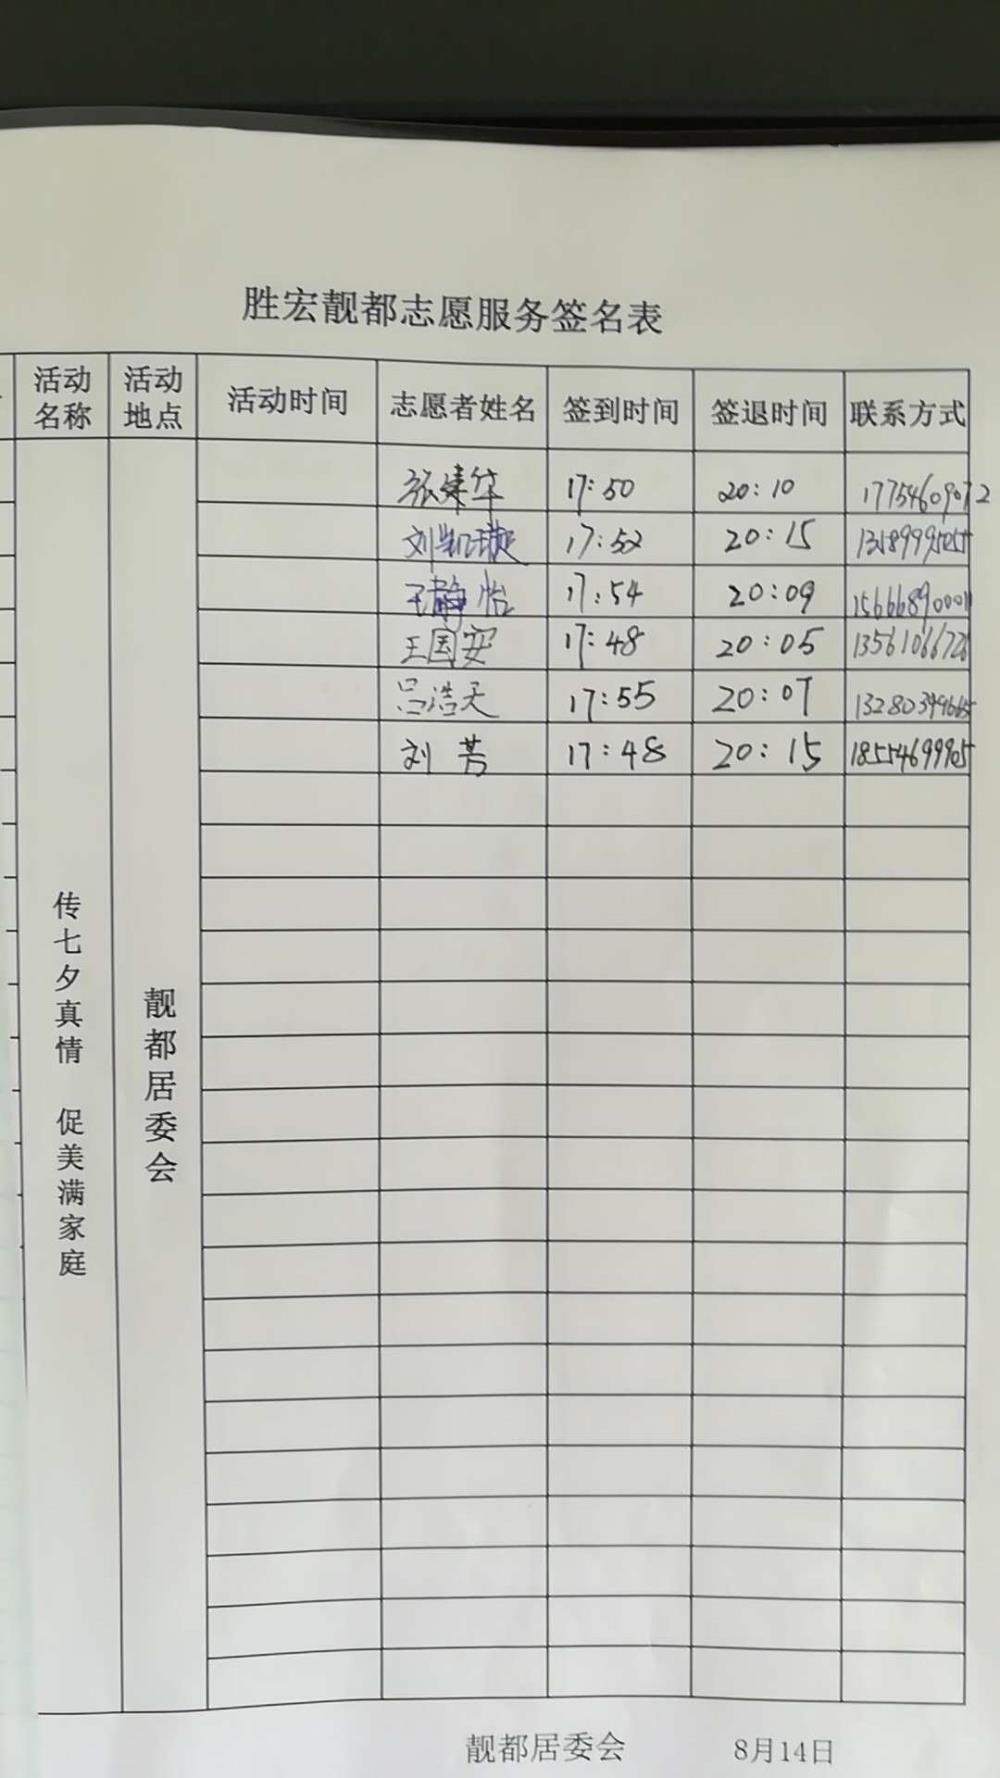 胜宏靓都志愿服务签名表
活动名称 活动地点 活动时间 志愿者姓名 签到时间 签退时间 联系方式
张建华 17:50 20:10 17754609072
刘凯璇 17:52 20:15
王静怡 17:54 20:09
王国安 17:48 20:05
吕浩天 17:55 20:07
刘芳 17:48 20:15 18554699905
传七夕真情 促美满家庭
靓都居委会
靓都居委会 8月14日